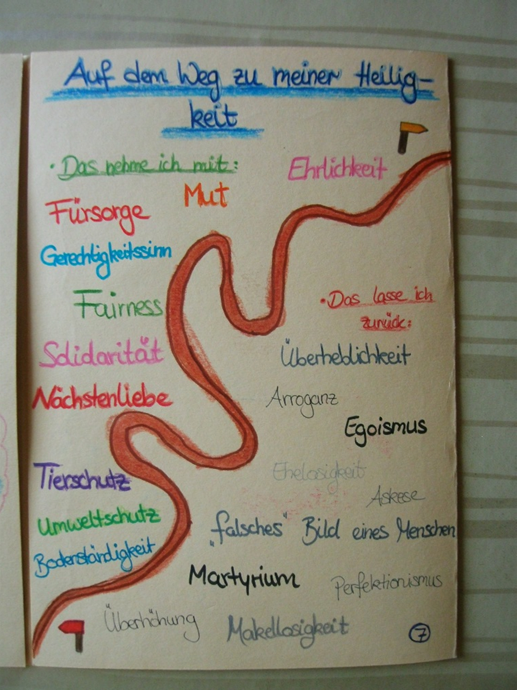 Auf dem Weg zu meiner Heilig-
keit
• Das nehme ich mit:
Ehrlichkeit
Mut
Fürsorge
Gerechtigkeitssinn
Fairness
Solidarität
Nächstenliebe
Tierschutz
Umweltschutz
Bodenständigkeit
• Das lasse ich
zurück:
Überheblichkeit
Arroganz
Egoismus
Ehelosigkeit
Askese
"falsches" Bild eines Menschen
Martyrium
Perfektionismus
Überhöhung
Makellosigkeit
7